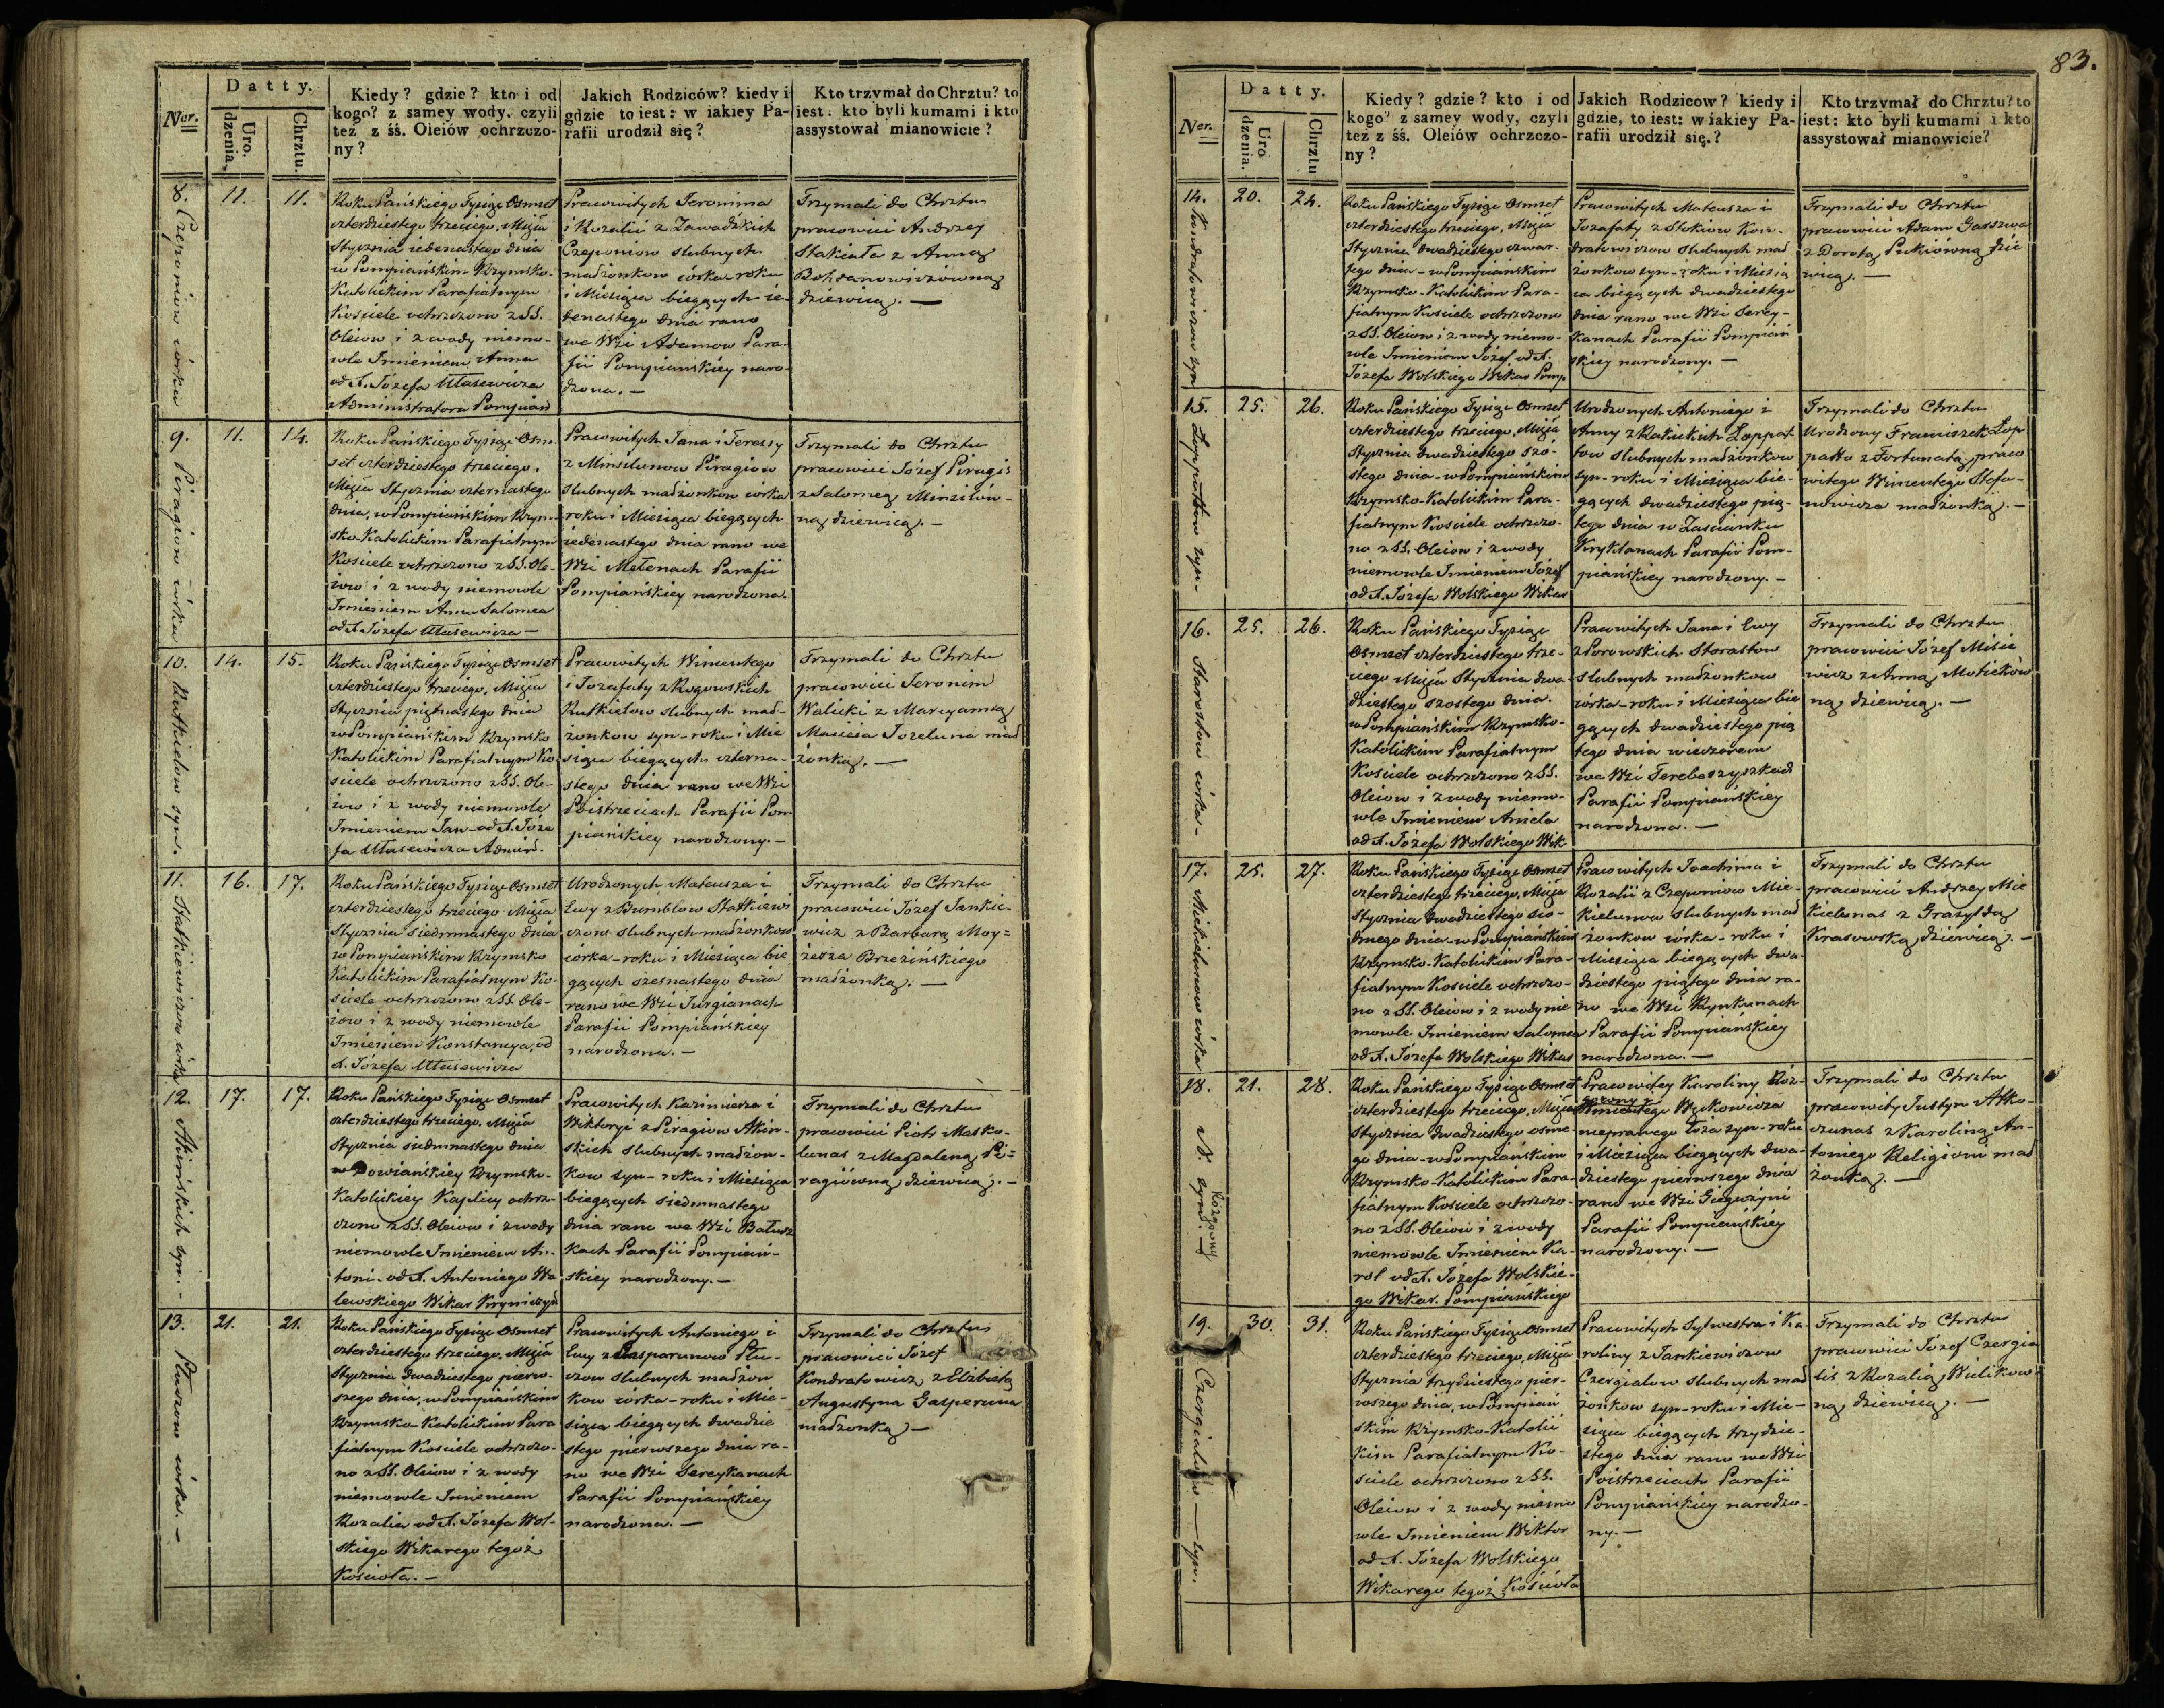 Datty.
Nor.
Uro.
dzenia.
Chrztu.
Kiedy? gdzie? kto i od
kogo? z samey wody. czyli
też z śś. Oleiów ochrzczo-
ny?
Jakich Rodziców? kiedy i
gdzie to iest: w iakiey Pa-
rafii urodził się?
Kto trzymał do Chrztu? to
iest: kto byli kumami i kto
assystował mianowicie?
8. Czeponiow córka
11.
11.
Roku Pańskiego Tysiąc Osmset
czterdziestego trzeciego, Miesiąca
Stycznia iedenastego dnia
w Pompiańskim Rzymsko-
Katolickim Parafialnym
Kościele ochrzczono z SS.
Oleiow i z wody niemo-
wle Imieniem Anna
od X. Józefa
Administratora Pompiań
Pracowitych Jeronima
i Rozalii z Zawadzkich
Czeponiow slubnych
małżonkow córka roku
i Miesiąca biegących ie-
denastego dnia rano
we Wsi Adamow Para-
fii Pompiańskiey naro-
dzona. —
Trzymali do Chrztu
pracowici Andrzey
Stakiała z Anną
Bohdanowiczówną
dziewicą. —
9. Piragiow córka
11.
14.
Roku Pańskiego Tysiąc Osm-
set czterdziestego trzeciego.
Stycznia czternastego
dnia, w Pompiańskim Rzym-
sko-Katolickim Parafialnym
Kościele ochrzczono z SS. Ole-
iow i z wody niemowle
Imieniem Anna Salomea
od X. Józefa
Pracowitych Jana i Teressy
z Minsilunow Piragiow
slubnych małżonkow córka
roku i Miesiąca biegących
iedenastego dnia rano we
Wsi Metenach Parafii
Pompiańskiey narodzona.
Trzymali do Chrztu
pracowici Józef Piragis
z Salomeą
ną dziewicą. —
10. Rutkielow syn.
14.
15.
Roku Pańskiego Tysiąc Osmset
czterdziestego trzeciego.
Stycznia piętnastego dnia
w Pompiańskim Rzymsko
Katolickim Parafialnym Ko-
sciele ochrzczono z SS. Ole-
iow i z wody niemowle
Imieniem Jan – od X. Józe
fa
Pracowitych Wincentego
i Jozafaty z Rogowskich
Rutkielow slubnych mał-
żonkow syn – roku i Mie
siąca biegących czterna-
stego dnia rano we Wsi
Poistrzeciach Parafii Pom
piańskiey narodzony. —
Trzymali do Chrztu
pracowici Jeronim
Walicki z Maryanną
Maucsa Jozeluna mał
żonką. —
11. Statkiewiczow córka
16.
17.
Roku Pańskiego Tysiąc Osmset
czterdziestego trzeciego
Stycznia siedmnastego dnia
w Pompiańskim Rzymsko
Katolickim Parafialnym Ko-
sciele ochrzczono z SS. Ole-
iow i z wody niemowle
Imieniem Konstancya, od
X. Józefa
Urodzonych Mateusza i
Ewy z Bumblow Statkiewi
czow slubnych małżonkow
córka – roku i Miesiąca bie
gących szesnastego dnia
rano we Wsi Jurgianach
Parafii Pompiańskiey
narodzona. —
Trzymali do Chrztu
pracowici Józef Jankie-
wicz z Barbarą Moy=
żesza Brzezińskiego
małżonką. —
12. Akinskich syn. –
17.
17.
Roku Pańskiego Tysiąc Osmset
czterdziestego trzeciego.
Stycznia siedmnastego dnia
w Rzymsko-
Katolickiey Kaplicy ochrz-
czono z SS. Oleiow i z wody
niemowle Imieniem An-
toni. od X. Antoniego Wa
lewskiego Wikar
Pracowitych Kazimierza i
Wiktoryi z Piragiow Akin-
skich slubnych małżon-
kow syn – roku i Miesiąca
biegących siedmnastego
dnia rano we Wsi Bałusz
kach Parafii Pompiań-
skiey narodzony. —
Trzymali do Chrztu
pracowici Piotr Masko-
lunas z Magdaleną Pi=
ragiówną dziewicą. —
13. Pluszow córka. –
21.
21.
Roku Pańskiego Tysiąc Osmset
czterdziestego trzeciego.
Stycznia dwadziestego pierw-
szego dnia, w Pompiańskim
Rzymsko-Katolickim Para
fialnym Kościele ochrzczo-
no z SS. Oleiow i z wody
niemowle Imieniem
Rozalia od X. Józefa Wol-
skiego Wikarego tegoż
Kościoła. —
Pracowitych Antoniego i
Ewy z Gasparunow Plu-
szow slubnych małżon
kow córka – roku i Mie-
siąca biegących dwadzie
stego pierwszego dnia ra-
no we Wsi Sereykanach
Parafii Pompiańskiey
narodzona. —
Trzymali do Chrztu
pracowici Józef
Kondratowicz z Elżbietą
Augustyna Gasperuna
małżonką —
83.
Datty.
Nor.
Uro
dzenia.
Chrztu
Kiedy? gdzie? kto i od
kogo? z samey wody, czyli
też z śś. Oleiów ochrzczo-
ny?
Jakich Rodzicow? kiedy i
gdzie, to iest: w iakiey Pa-
rafii urodził się.?
Kto trzymał do Chrztu? to
iest: kto byli kumami i kto
assystował mianowicie?
14. Kondratowiczow syn
20.
24.
Roku Pańskiego Tysiąc Osmset
czterdziestego trzeciego,
Stycznia dwadziestego czwar-
tego dnia – w Pompiańskim
Rzymsko-Katolickim Para-
fialnym Kościele ochrzczono
z SS. Oleiow i z wody niemo-
wle Imieniem Józef od X.
Józefa Wolskiego Wikar Pomp
Pracowitych Mateusza i
Jozafaty z Kon-
dratowiczow slubnych mał
żonkow syn – roku i Miesią
ca biegących dwadziestego
dnia rano we Wsi Serey-
kanach Parafii Pompiań
skiey narodzony. —
Trzymali do Chrztu
pracowici Adam Garszwa
z Dorotą Pukiówną dzie
wicą. —
15. Loppattow syn –
25.
26.
Roku Pańskiego Tysiąc Osmset
czterdziestego trzeciego.
Stycznia dwadziestego szó-
stego dnia – w Pompiańskim
Rzymsko-Katolickim Para-
fialnym Kościele ochrzczo-
no z SS. Oleiow i z wody
niemowle Imieniem Józef
od X. Józefa Wolskiego Wikar
Urodzonych Antoniego i
Anny z Loppat-
tow slubnych małżonkow
syn – roku i Miesiąca bie-
gących dwadziestego pią-
tego dnia w Zascianku
Kryklanach Parafii Pom-
piańskiey narodzony. —
Trzymali do Chrztu
Urodzony Franciszek Lop
patto z Fortunatą, praco
witego Wincentego Stefa-
nowicza małżonką. —
16. Starostow córka –
25.
26.
Roku Pańskiego Tysiąc
Osmset czterdziestego trze-
ciego Stycznia dwa-
dziestego szostego dnia.
w Pompiańskim Rzymsko-
Katolickim Parafialnym
Kościele ochrzczono z SS.
Oleiow i z wody niemo-
wle Imieniem Aniela
od X. Józefa Wolskiego Wik
Pracowitych Jana i Ewy
z Porowskich Starostow
slubnych małżonkow
córka – roku i Miesiąca bie
gących dwadziestego pią
tego dnia wieczorem
we Wsi Terebeszyszkach
Parafii Pompiańskiey
narodzona. —
Trzymali do Chrztu
pracowici Józef Misie
wicz z Anną Motieków
ną dziewicą. —
17. Mikielunow córka
25.
27.
Roku Pańskiego Tysiąc Osmset
czterdziestego trzeciego,
Stycznia dwadziestego sió-
dmego dnia – w Pompiańskim
Rzymsko-Katolickim Para-
fialnym Kościele ochrzczo-
no z SS. Oleiow i z wody nie
mowle Imieniem Salomea
od X. Józefa Wolskiego Wikar
Pracowitych Joachima i
Rozalii z Czeponiow Mie-
kielunow slubnych mał
żonkow córka – roku i
Miesiąca biegących dwa-
dziestego piątego dnia ra-
no we Wsi Rynkunach
Parafii Pompiańskiey
narodzona. —
Trzymali do Chrztu
pracowici Andrzey Mie
kielunas z Grazyldą
Krasowską dziewicą. —
18. N. Rózgowny syn. –
21.
28.
Roku Pańskiego Tysiąc Osmset
czterdziestego trzeciego,
Stycznia dwadziestego osme-
go dnia – w Pompiańskim
Rzymsko-Katolickim Para-
fialnym Kościele ochrzczo-
no z SS. Oleiow i z wody
niemowle Imieniem Ka-
rol od X. Józefa Wolskie-
go Wikar. Pompiańskiego
Pracowitey Karoliny Róz-
gowny
nieprawego łoża syn – roku
i Miesiąca biegących dwa-
dziestego pierwszego dnia
rano we Wsi
Parafii Pompiańskiey
narodzony. —
Trzymali do Chrztu
pracowity Justyn Atko-
czunas z Karoliną An-
toniego Religioni mał
żonką. —
19. Czergialow – syn.
30.
31.
Roku Pańskiego Tysiąc Osmset
czterdziestego trzeciego,
Stycznia trzydziestego pier-
wszego dnia, w Pompiań
skim Rzymsko-Katolic
kim Parafialnym Ko-
sciele ochrzczono z SS.
Oleiow i z wody niemo
wle Imieniem Wiktor
od X. Józefa Wolskiego
Wikarego tegoż Kościoła
Pracowitych Sylwestra i Ka-
roliny z Jankiewiczow
Czergialow slubnych mał
żonkow syn – roku i Mie-
siąca biegących trzydzie-
stego dnia rano we Wsi
Poistrzeciach Parafii
Pompiańskiey narodzo-
ny. —
Trzymali do Chrztu
pracowici Józef Czergia
lis z Rozalią Wielikow-
ną dziewicą. —